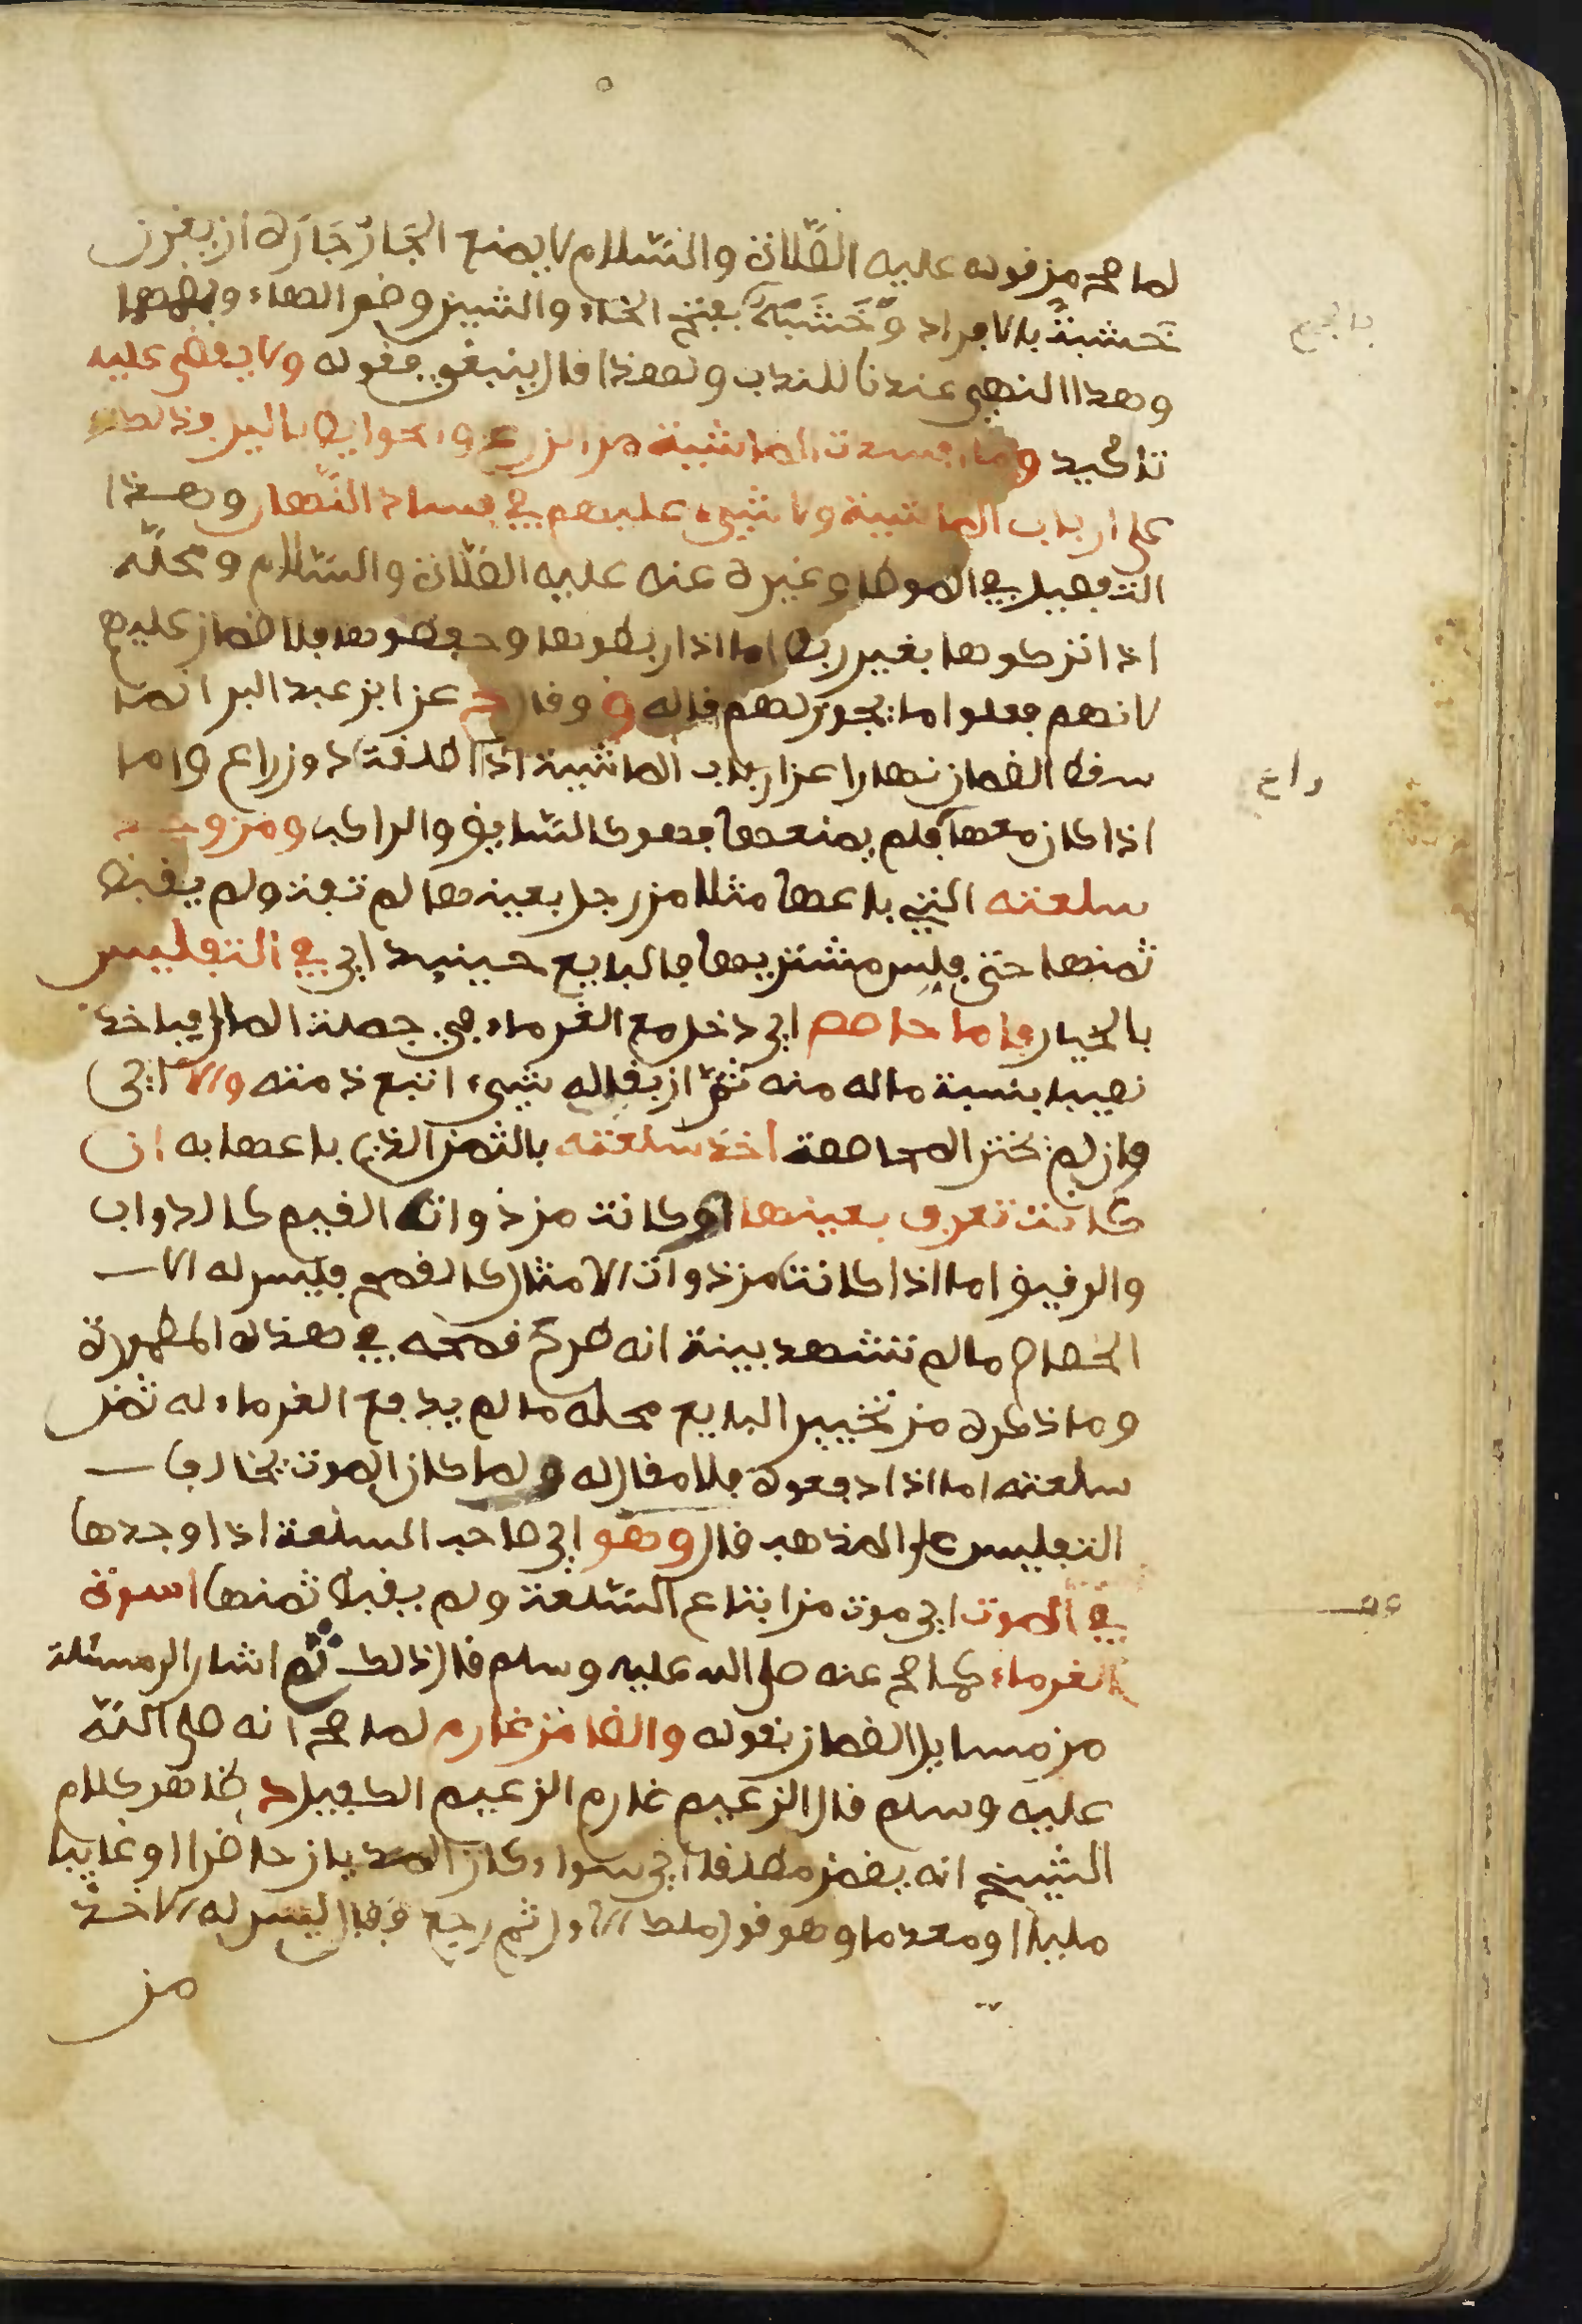 لما صح من قوله عليه الصّلاة والسّلام لا يمنع الجَارُ جَارَهُ ان يغرز
خَشبةً بالافراد وَخَشَبَهُ بفتح الخاء والشين وضم الهاء
وهذا النهي عندنا للندب ولهذا قال ينبغي فقوله ولا يقضى عليه
تاكيد وما افسدت الماشية من الزرع والحوايط بالليل فذلك
على ارباب الماشية ولا شيء عليهم في فساد النَّهار وهذا
التفصيل في الموطا وغيره عنه عليه الصّلاة والسّلام ومحلّه
اذا تركوها بغير ربط اما اذا ربطوها وحفظوها فلا ضمان عليهم
لانهم فعلوا ما يجوز لهم قاله ق وقال ج عن ابن عبد البر انما
سقط الضمان نهارا عن ارباب الماشية اذا اطلقت دون راع واما
اذا كان معها فلم يمنعها فهو كالسّايق والراكب ومن وجد
سلعته التي باعها مثلا من رجل بعينها لم تفت ولم يقبض
ثمنها حتى فلس مشتريها فالبايع حينيد اي في التفليس
بالخيار فاما حاصص اي دخل مع الغرماء في جملة المال فياخذ
نصيبه بنسبة ماله منه ثمّ ان بقي له شيء اتبع ذمته والا اي
وان لم يختر المحاصة اخذ سلعته بالثمن الذي باعها به ان
كانت تعرف بعينها او كانت من ذوات القيم كالدواب
والرقيق اما اذا كانت من ذوات الامثال كالقمح فليس له الا
الخصام ما لم تشهد بينة انه طرح قمحه في هذه المطمورة
وما ذكره من تخيير البايع محله ما لم يدفع الغرماء له ثمن
سلعته اما اذا دفعوه فلا مقال له ولما كان الموت يخالف
التفليس على المذهب قال وهو اي صاحب السلعة اذا وجدها
في الموت اي موت من ابتاع السّلعة ولم يقبض ثمنها اسوة
الغرماء كما صح عنه صلى الله عليه وسلم قال ذلك ثم اشار الى مسئلة
من مسايل الضمان بقوله والضامن غارم لما صح انه صلى اللّه
عليه وسلم قال الزعيم غارم الزعيم الكفيل ج ظاهر كلام
الشيخ انه يضمن مطلقا اي سواء كان المديان حاضرا او غايبا
مليا او معدما وهو قول ملك الاول ثم رجع فقال ليس له الاخذ
من